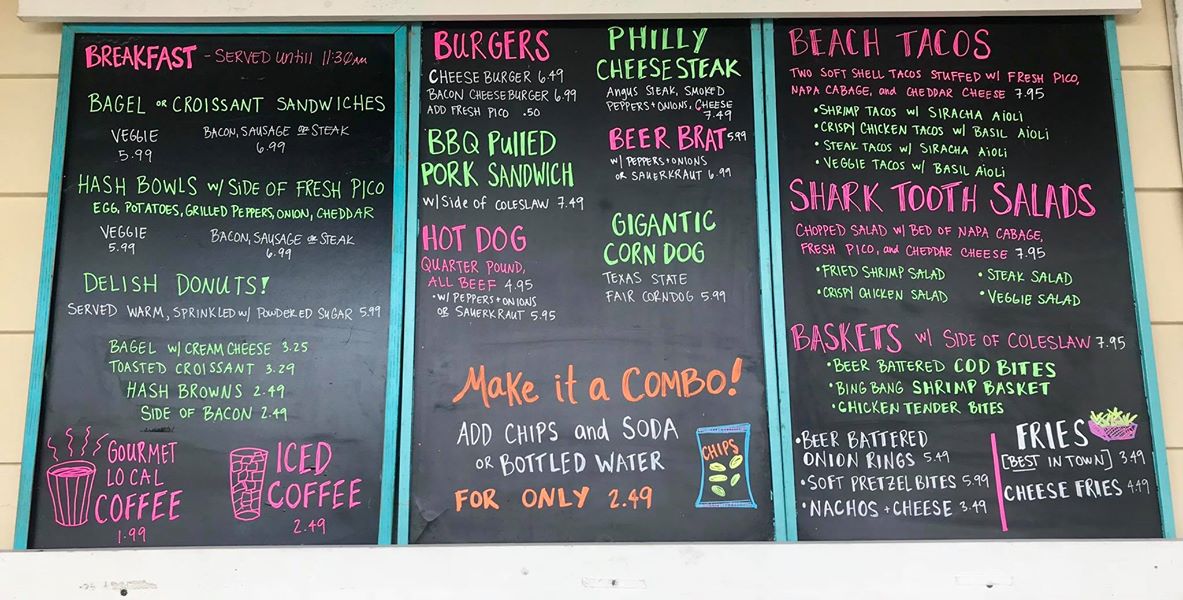 BREAKFAST - SERVED Untill 11:30AM
BAGEL OR CROISSANT SANDWICHES
VEGGIE
5.99
BACON, SAUSAGE OR STEAK
6.99
HASH BOWLS W/ SIDE OF FRESH PICO
EGG, POTATOES, GRILLED PEPPERS, ONION, CHEDDAR
VEGGIE
5.99
BACON, SAUSAGE OR STEAK
6.99
DELISH DONUTS!
SERVED WARM, SPRINKLED W/ POWDERED SUGAR 5.99
BAGEL W/ CREAM CHEESE 3.25
TOASTED CROISSANT 3.29
HASH BROWNS 2.49
SIDE OF BACON 2.49
GOURMET
LOCAL
COFFEE
1.99
ICED
COFFEE
2.49
BURGERS
CHEESEBURGER 6.49
BACON CHEESEBURGER 6.99
ADD FRESH PICO .50
BBQ PUlled
PORK SANDWICH
W/ Side of COLESLAW 7.49
HOT DOG
QUARTER POUND,
ALL BEEF 4.95
• W/ PEPPERS + ONIONS
OR SAUERKRAUT 5.95
PHILLY
CHEESESTEAK
ANGUS STEAK, SMOKED
PEPPERS + ONIONS, CHEESE
7.49
BEER BRAT 5.99
W/ PEPPERS + ONIONS
OR SAUERKRAUT 6.99
GIGANTIC
CORN DOG
TEXAS STATE
FAIR CORNDOG 5.99
Make it a COMBO!
ADD CHIPS and SODA
OR BOTTLED WATER
FOR ONLY 2.49
CHIPS
BEACH TACOS
TWO SOFT SHELL TACOS STUFFED W/ FRESH PICO,
NAPA CABAGE, and CHEDDAR CHEESE 7.95
• SHRIMP TACOS W/ SIRACHA AIOLI
• CRISPY CHICKEN TACOS W/ BASIL AIOLI
• STEAK TACOS W/ SIRACHA AIOLI
• VEGGIE TACOS W/ BASIL AIOLI
SHARK TOOTH SALADS
CHOPPED SALAD W/ BED OF NAPA CABAGE,
FRESH PICO, and CHEDDAR CHEESE 7.95
• FRIED SHRIMP SALAD
• STEAK SALAD
• CRISPY CHICKEN SALAD
• VEGGIE SALAD
BASKETS W/ SIDE OF COLESLAW 7.95
• BEER BATTERED COD BITES
• BING BANG SHRIMP BASKET
• CHICKEN TENDER BITES
• BEER BATTERED
ONION RINGS 5.49
• SOFT PRETZEL BITES 5.99
• NACHOS + CHEESE 3.49
FRIES
[BEST IN TOWN] 3.49
CHEESE FRIES 4.49